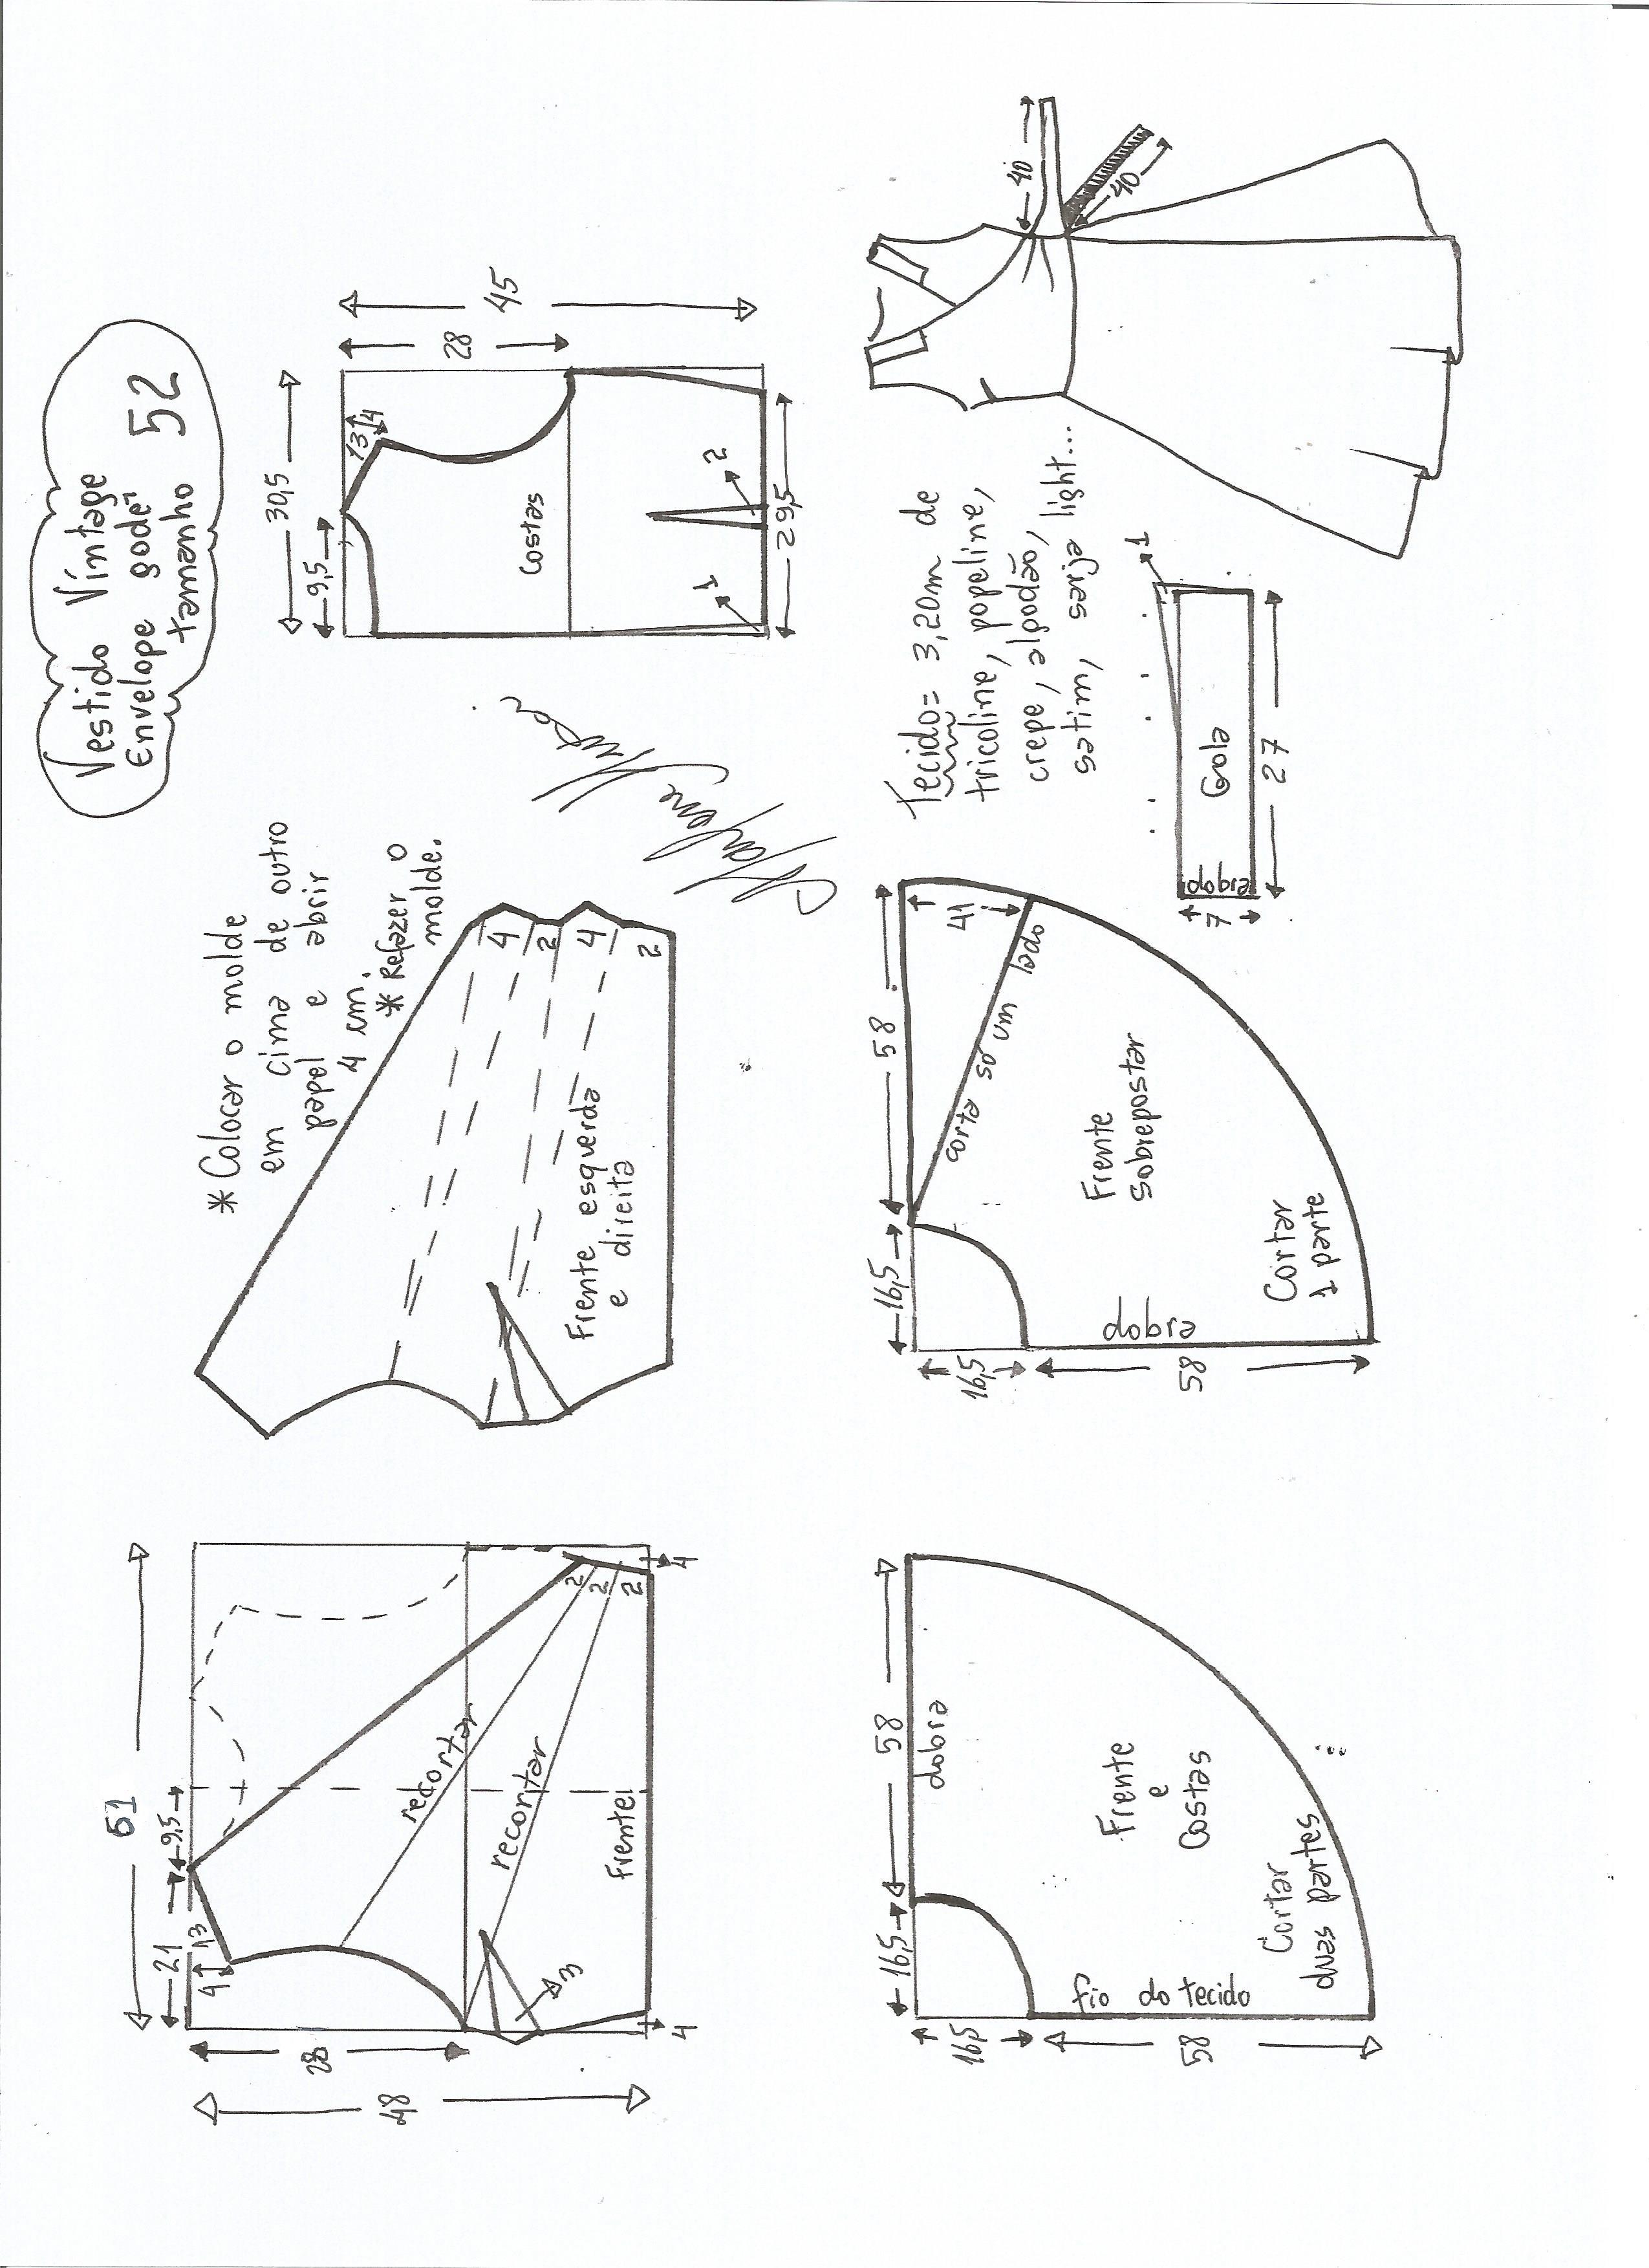 Vestido Vintage
Envelope godê
tamanho 52
61
21
9,5
13
4
28
48
recortar
recortar
Frente
3
2
2
2
4
4
* Colocar o molde
em cima de outro
papel e abrir
4 cm.
* Refazer o
molde.
4
2
4
2
Frente esquerda
e direita
30,5
9,5
13
4
28
45
Costas
1
2
29,5
16,5
58
dobra
16,5
58
Frente
e
Costas
fio do tecido
Cortar
duas partes
16,5
58
41
corta só um lado
16,5
58
dobra
Frente
sobrepostar
Cortar
1 parte
Tecido= 3,20m de
tricoline, popeline,
crepe, algodão,
satim, sarja light...
dobra
7
Gola
27
1
40
40